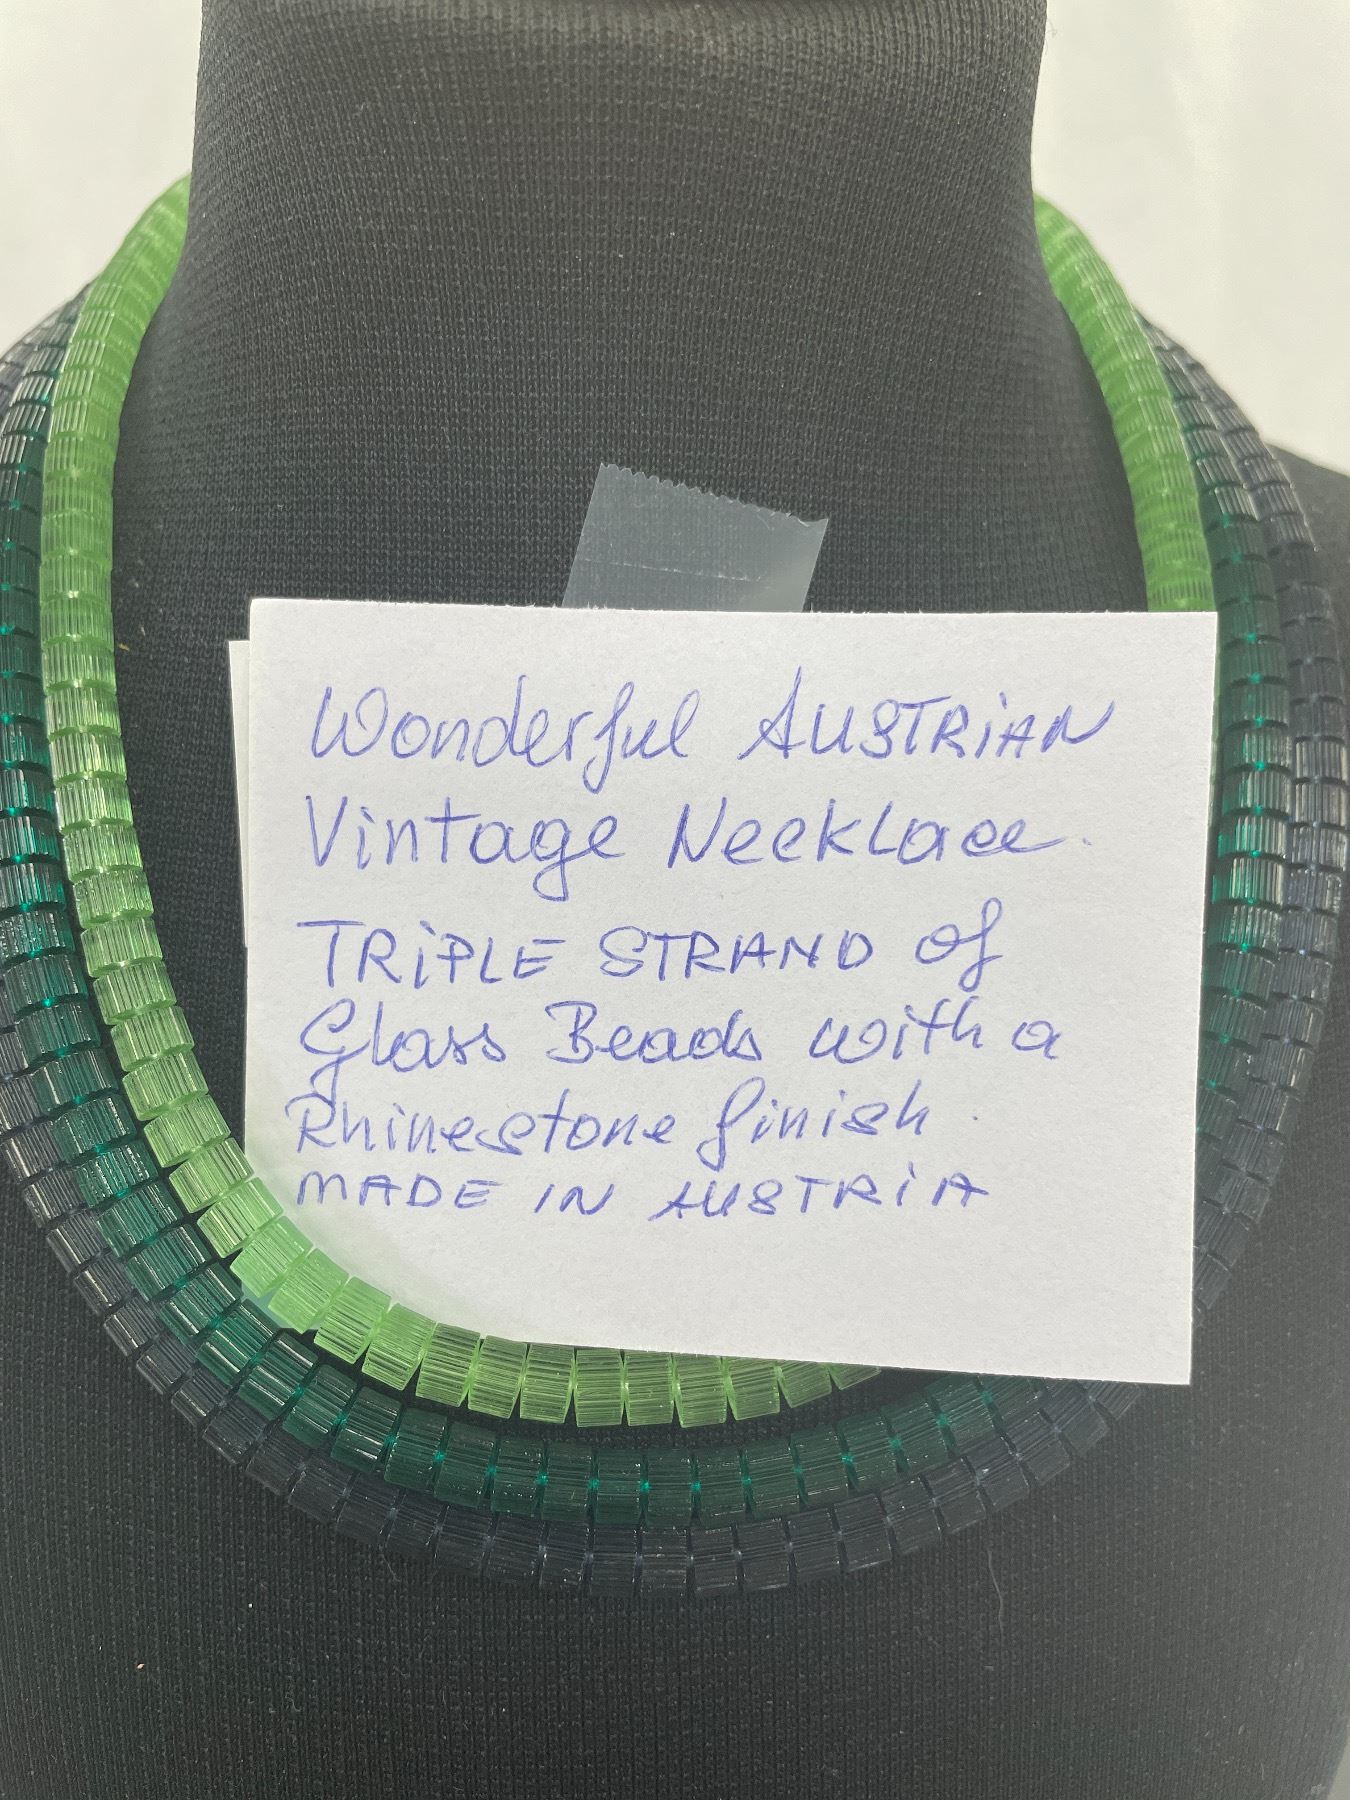 Wonderful AUSTRiAN
Vintage Necklace.
TRiPLE STRAND of
Glass Beads with a
Rhinestone finish.
MADE IN AUSTRiA